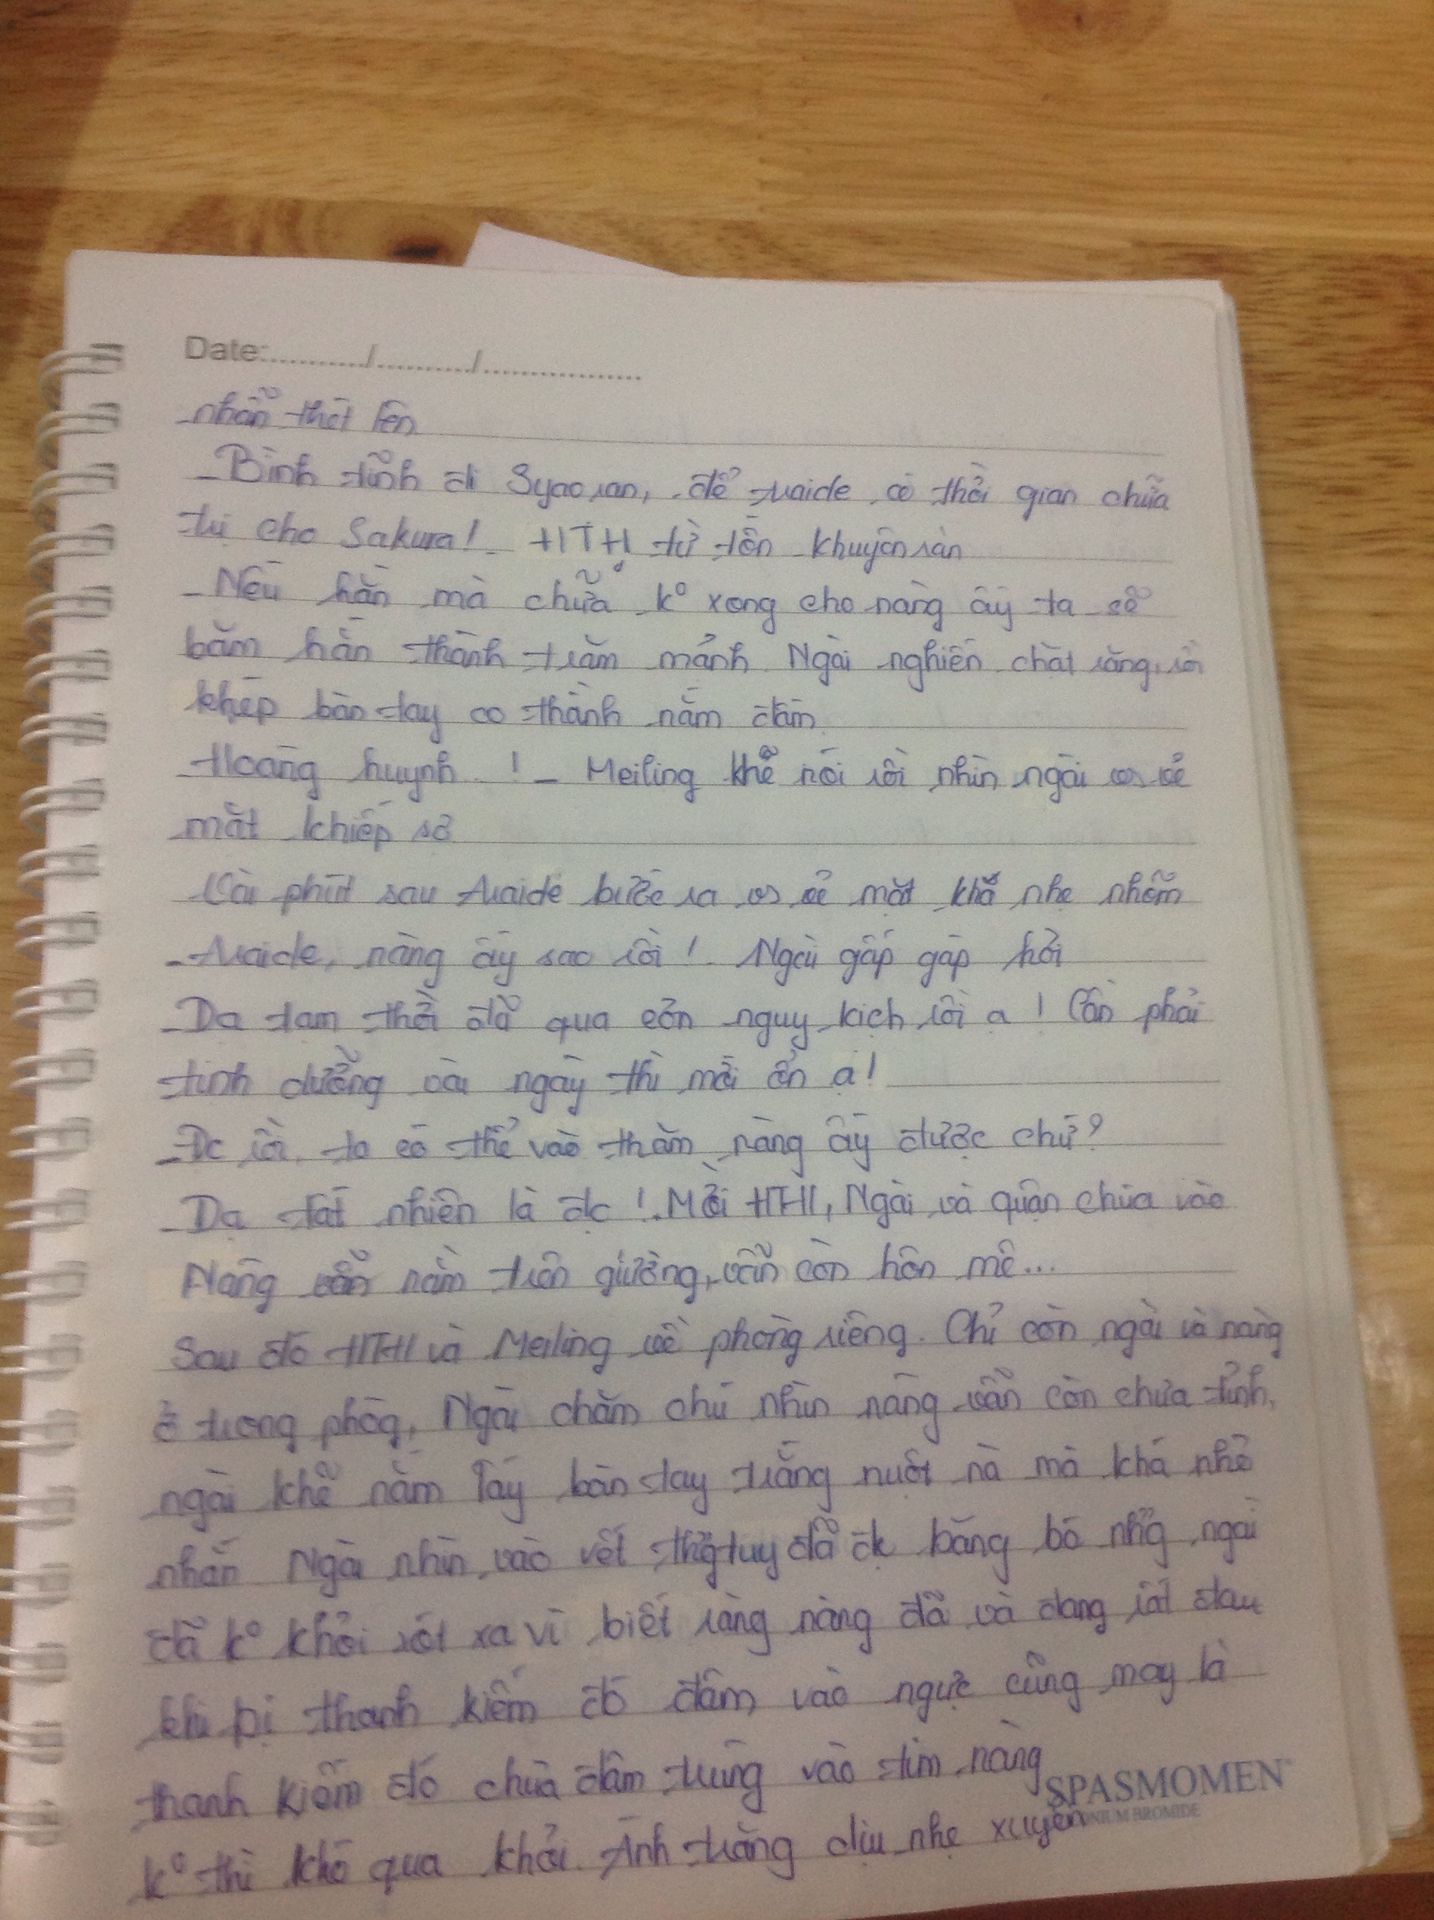 Date:........../........../................
nhẫn thét lên
- Bình tĩnh đi Syaoran, để traide có thời gian chữa
trị cho Sakura! - HTH từ tốn khuyên răn
- Nếu hắn mà chữa k° xong cho nàng ấy ta sẽ
băm hắn thành trăm mảnh. Ngài nghiến chặt răng, rồi
khép bàn tay co thành nắm đấm
- Hoàng huynh! - Meiling khẽ nói rồi nhìn ngài vs vẻ
mặt khiếp sợ
Vài phút sau traide bước ra vs vẻ mặt khá nhẹ nhõm
- traide, nàng ấy sao rồi! Ngài gấp gáp hỏi
- Dạ tạm thời đã qua cơn nguy kịch rồi ạ! Cần phải
tịnh dưỡng vài ngày thì mới ổn ạ!
- Đc rồi, ta có thể vào thăm nàng ấy được chứ?
- Dạ tất nhiên là đc! Mời HTH, Ngài và quận chúa vào
Nàng nằm trên giường, vẫn còn hôn mê...
Sau đó HTH và Meiling về phòng riêng. Chỉ còn ngài và nàng
ở trong phòg, Ngài chăm chú nhìn nàng vẫn còn chưa tỉnh,
ngài khẽ nắm lấy bàn tay trắng nuột nà mà khá nhỏ
nhắn Ngài nhìn vào vết thươg tuy đã đc băng bó nhg ngài
đã k° khỏi xót xa vì biết rằng nàng đã và đang rất đau
khi bị thanh kiếm đó đâm vào ngực cũng may là
thanh kiếm đó chưa đâm trúng vào tim nàng
SPASMOMEN®
NIUM BROMIDE
k° thì khó qua khỏi. Ánh trăng dịu nhẹ xuyên